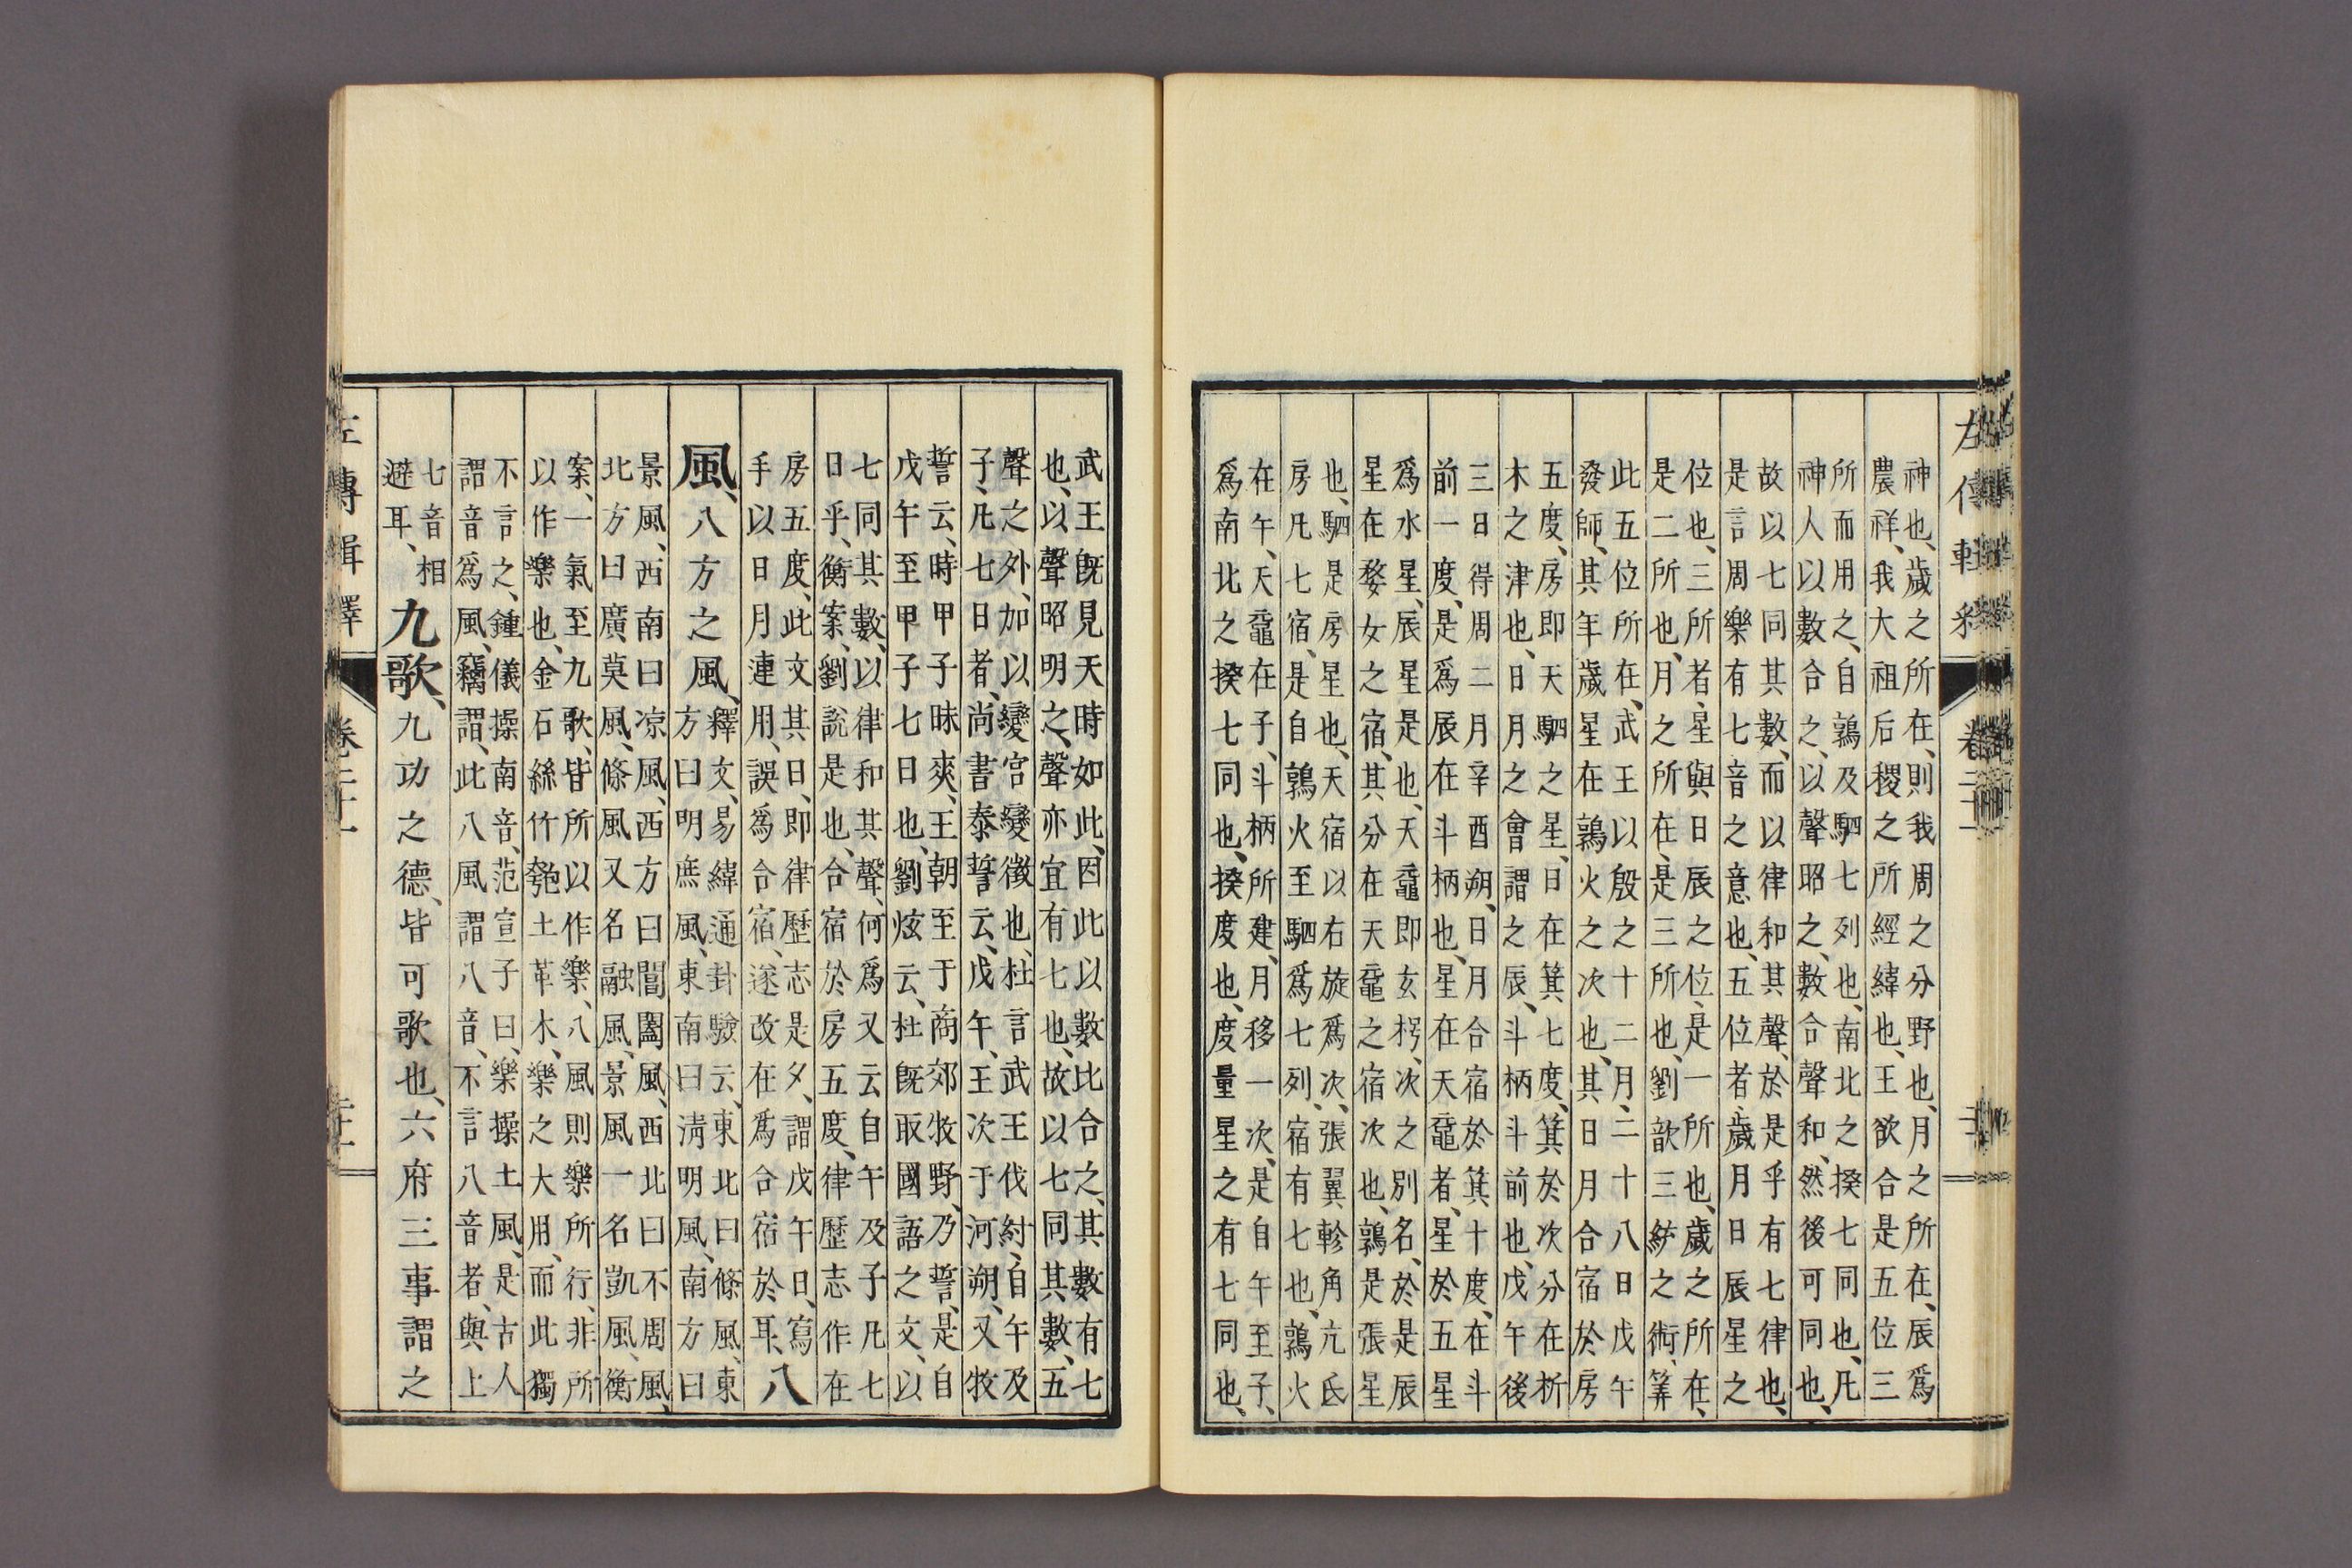 神也、歲之所在、則我周之分野也、月之所在、辰爲
農祥、我大祖后稷之所經緯也、王欲合是五位三
所而用之、自鶉及駟七列也、南北之揆七同也、凡
神人以數合之、以聲昭之、數合聲和、然後可同也、
故以七同其數、而以律和其聲、於是乎有七律也、
是言周樂有七音之意也、五位者、歲月日辰星之
位也、三所者、星與日辰之位、是一所也、歲之所在、
是二所也、月之所在、是三所也、劉歆三統之術、筭
此五位所在、武王以殷之十二月、二十八日戊午
發師、其年歲星在鶉火之次也、其日月合宿於房
五度、房即天駟之星、日在箕七度、箕於次分在析
木之津也、日月之會謂之辰、斗柄斗前也、戊午後
三日得周二月辛酉朔、日月合宿於箕十度、在斗
前一度、是爲辰在斗柄也、星在天黿者、星於五星
爲水星、辰星是也、天黿即玄枵、次之別名、於是辰
星在婺女之宿、其分在天黿之宿次也、鶉是張星
也、駟是房星也、天宿以右旋爲次、張翼軫角亢氐
房凡七宿、是自鶉火至駟爲七列、宿有七也、鶉火
在午、天黿在子、斗柄所建、月移一次、是自午至子、
爲南北之揆七同也、揆度也、度量星之有七同也、
武王既見天時如此、因此以數比合之、其數有七
也、以聲昭明之、聲亦宜有七也、故以七同其數、五
聲之外、加以變宮變徵也、杜言武王伐紂、自午及
子、凡七日者、尚書泰誓云、戊午、王次于河朔、又牧
誓云、時甲子昧爽、王朝至于商郊牧野、乃誓、是自
戊午至甲子七日也、劉炫云、杜既取國語之文、以
七同其數、以律和其聲、何爲又云自午及子凡七
日乎、衡案、劉說是也、合宿於房五度、律歷志作在
房五度、此文其日、即律歷志是夕、謂戊午日、寫
手以日月連用、誤爲合宿、遂改在爲合宿於耳、八
風、八方之風、釋文、易緯通卦驗云、東北曰條風、東
方曰明庶風、東南曰淸明風、南方曰
景風、西南曰凉風、西方曰閶闔風、西北曰不周風、
北方曰廣莫風、條風又名融風、景風一名凱風、衡
案、一氣至九歌、皆所以作樂、八風則樂所行、非所
以作樂也、金石絲竹匏土革木、樂之大用、而此獨
不言之、鍾儀操南音、范宣子曰、樂操土風、是古人
謂音爲風、竊謂、此八風謂八音、不言八音者、與上
七音相
避耳、九歌、九功之德、皆可歌也、六府三事謂之
左傳輯釋
卷二十一